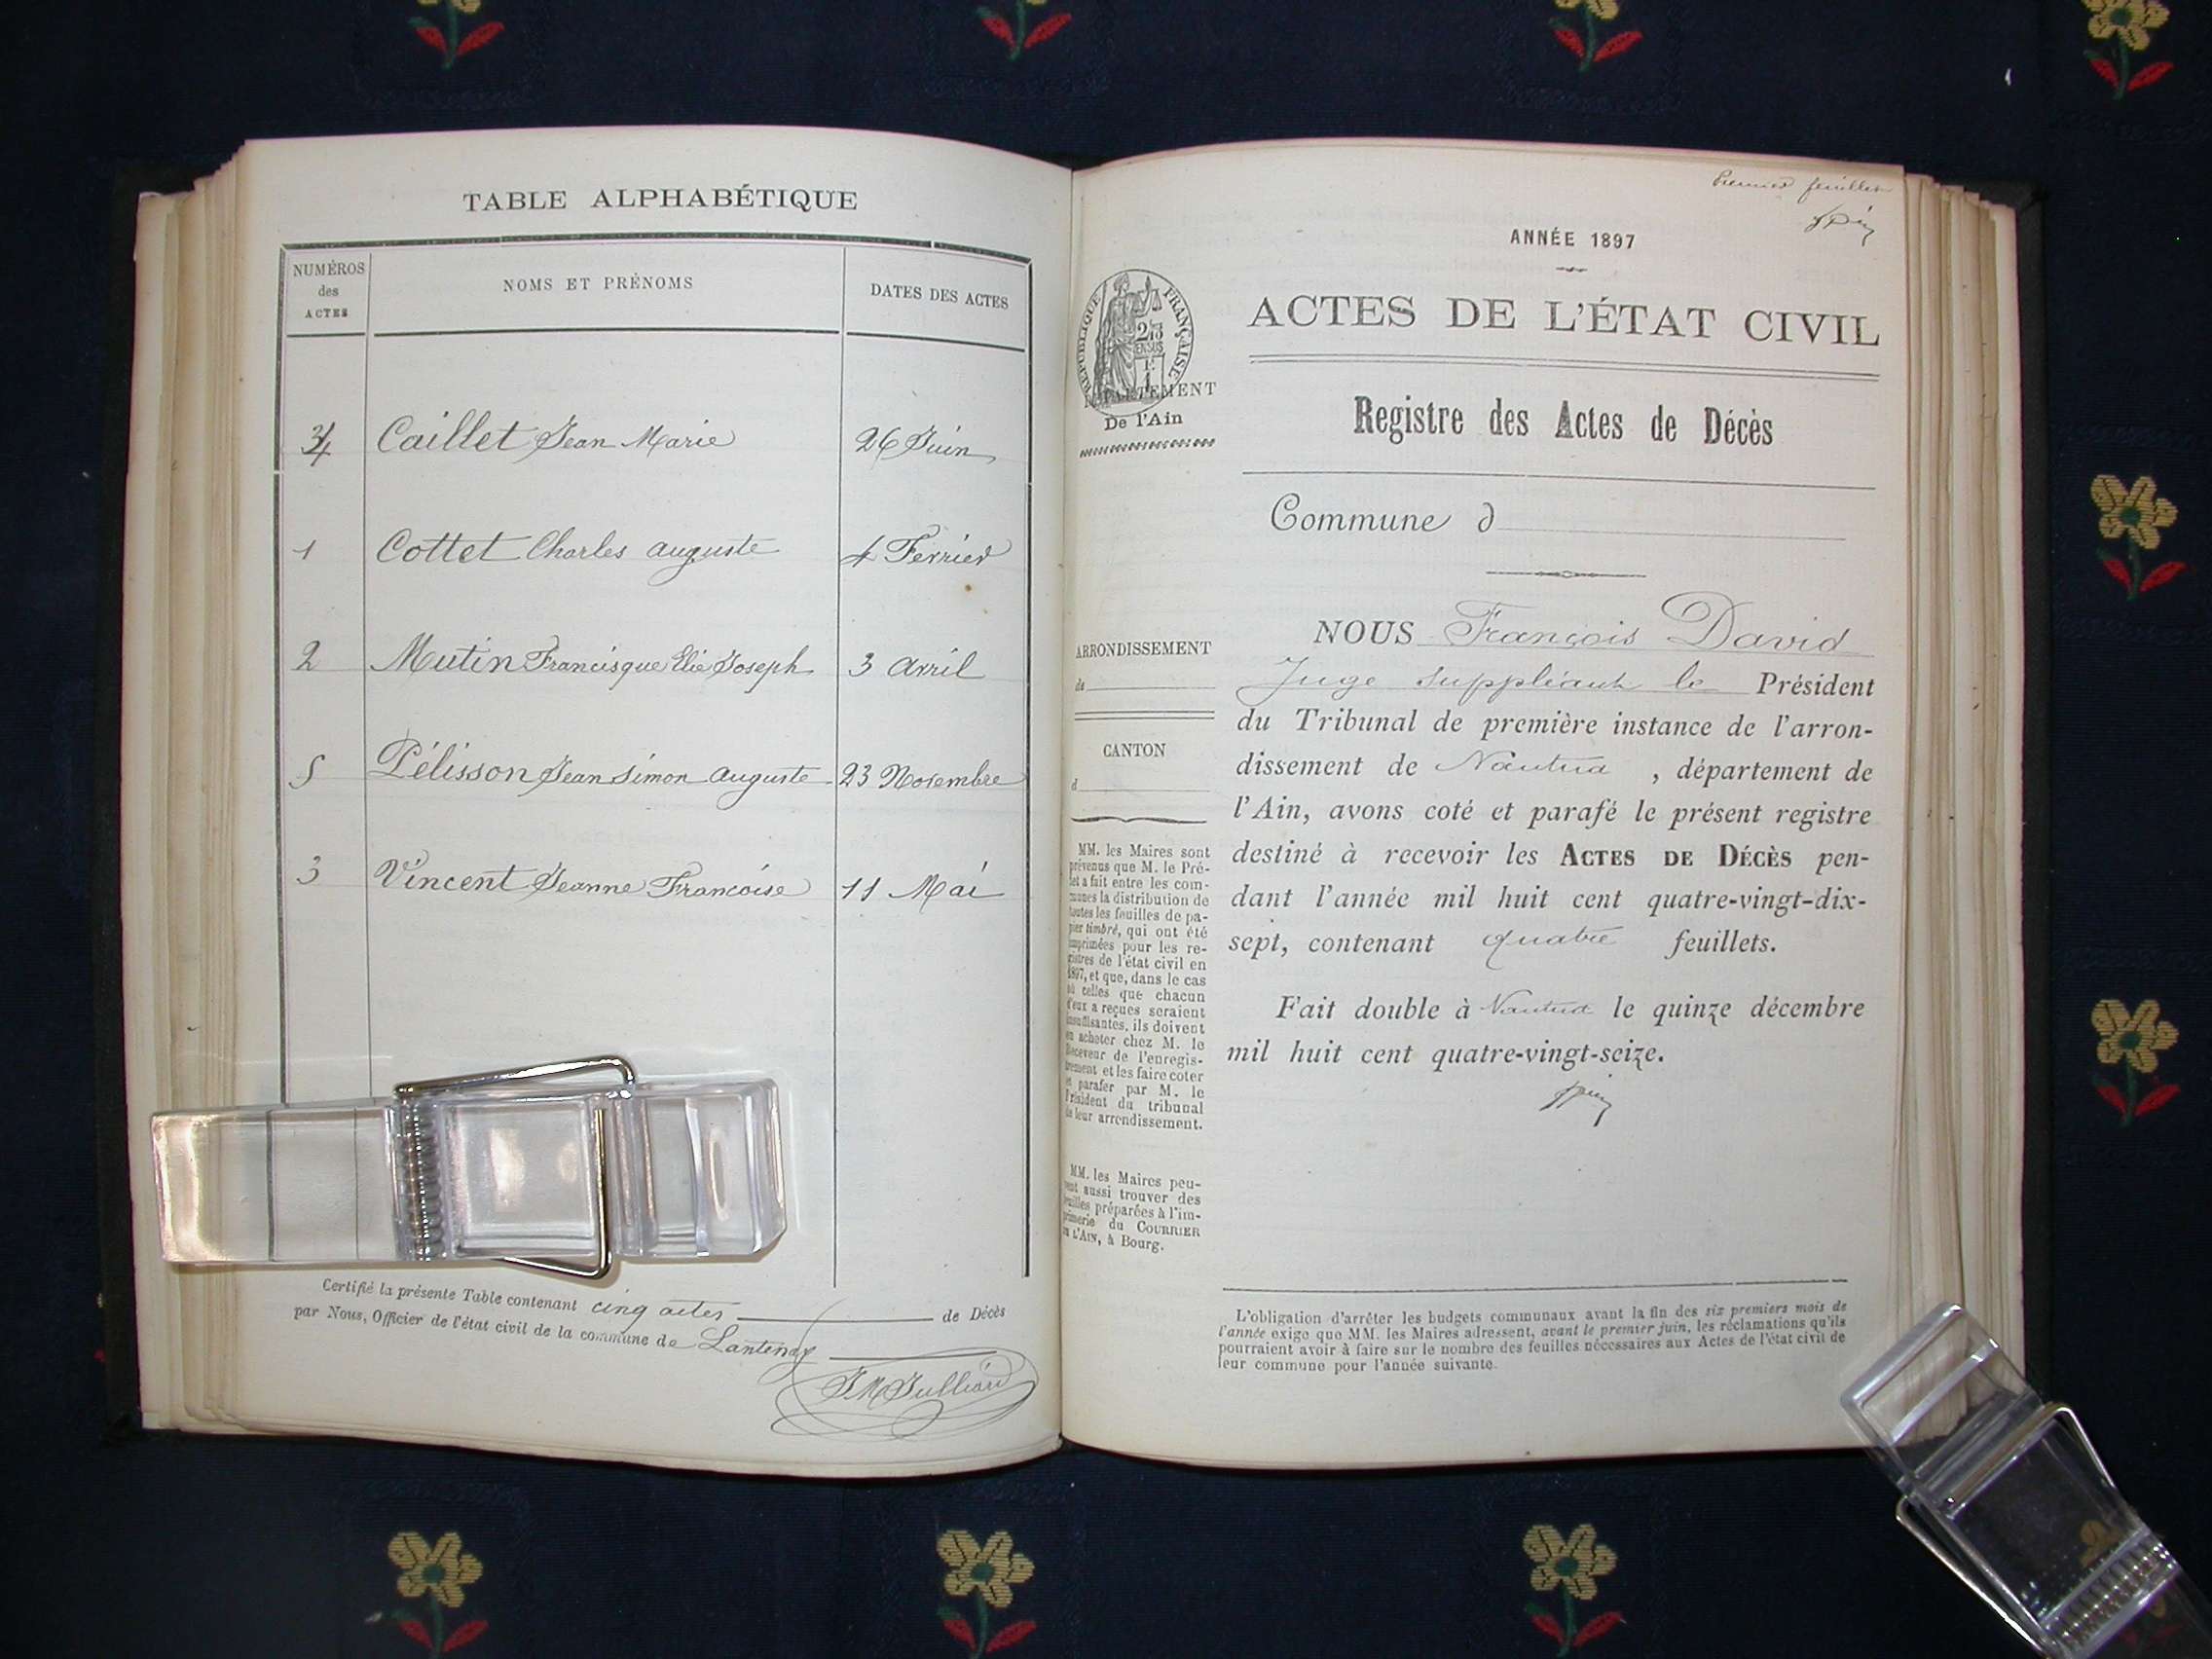 TABLE ALPHABÉTIQUE
NUMÉROS
des
ACTES
NOMS ET PRÉNOMS
DATES DES ACTES
4 Caillet Jean Marie 26 Juin
1 Cottet Charles auguste 4 Fevrier
2 Mutin Francisque Elie Joseph 3 avril
5 Pélisson Jean Simon auguste 23 Novembre
3 Vincent Jeanne Francoise 11 Mai
Certifié la présente Table contenant cinq actes de Décès
par Nous, Officier de l'état civil de la commune de Lantenay
JM Julliard
Premier feuillet
ANNÉE 1897
RÉPUBLIQUE FRANÇAISE
DÉPARTEMENT
De l'Ain
ACTES DE L'ÉTAT CIVIL
Registre des Actes de Décès
Commune d
ARRONDISSEMENT
de
CANTON
d
MM. les Maires sont
prévenus que M. le Pré-
fet a fait entre les com-
munes la distribution de
toutes les feuilles de pa-
pier timbré, qui ont été
imprimées pour les re-
gistres de l'état civil en
1897, et que, dans le cas
où celles que chacun
d'eux a reçues seraient
insuffisantes, ils doivent
en acheter chez M. le
Receveur de l'enregis-
trement et les faire coter
et parafer par M. le
Président du tribunal
de leur arrondissement.
MM. les Maires peu-
vent aussi trouver des
feuilles préparées à l'im-
primerie du COURRIER
DE L'AIN, à Bourg.
NOUS François David
Juge suppléant le Président
du Tribunal de première instance de l'arron-
dissement de Nantua , département de
l'Ain, avons coté et parafé le présent registre
destiné à recevoir les ACTES DE DÉCÈS pen-
dant l'année mil huit cent quatre-vingt-dix-
sept, contenant quatre feuillets.
Fait double à Nantua le quinze décembre
mil huit cent quatre-vingt-seize.
L'obligation d'arrêter les budgets communaux avant la fin des six premiers mois de
l'année exige que MM. les Maires adressent, avant le premier juin, les réclamations qu'ils
pourraient avoir à faire sur le nombre des feuilles nécessaires aux Actes de l'état civil de
leur commune pour l'année suivante.